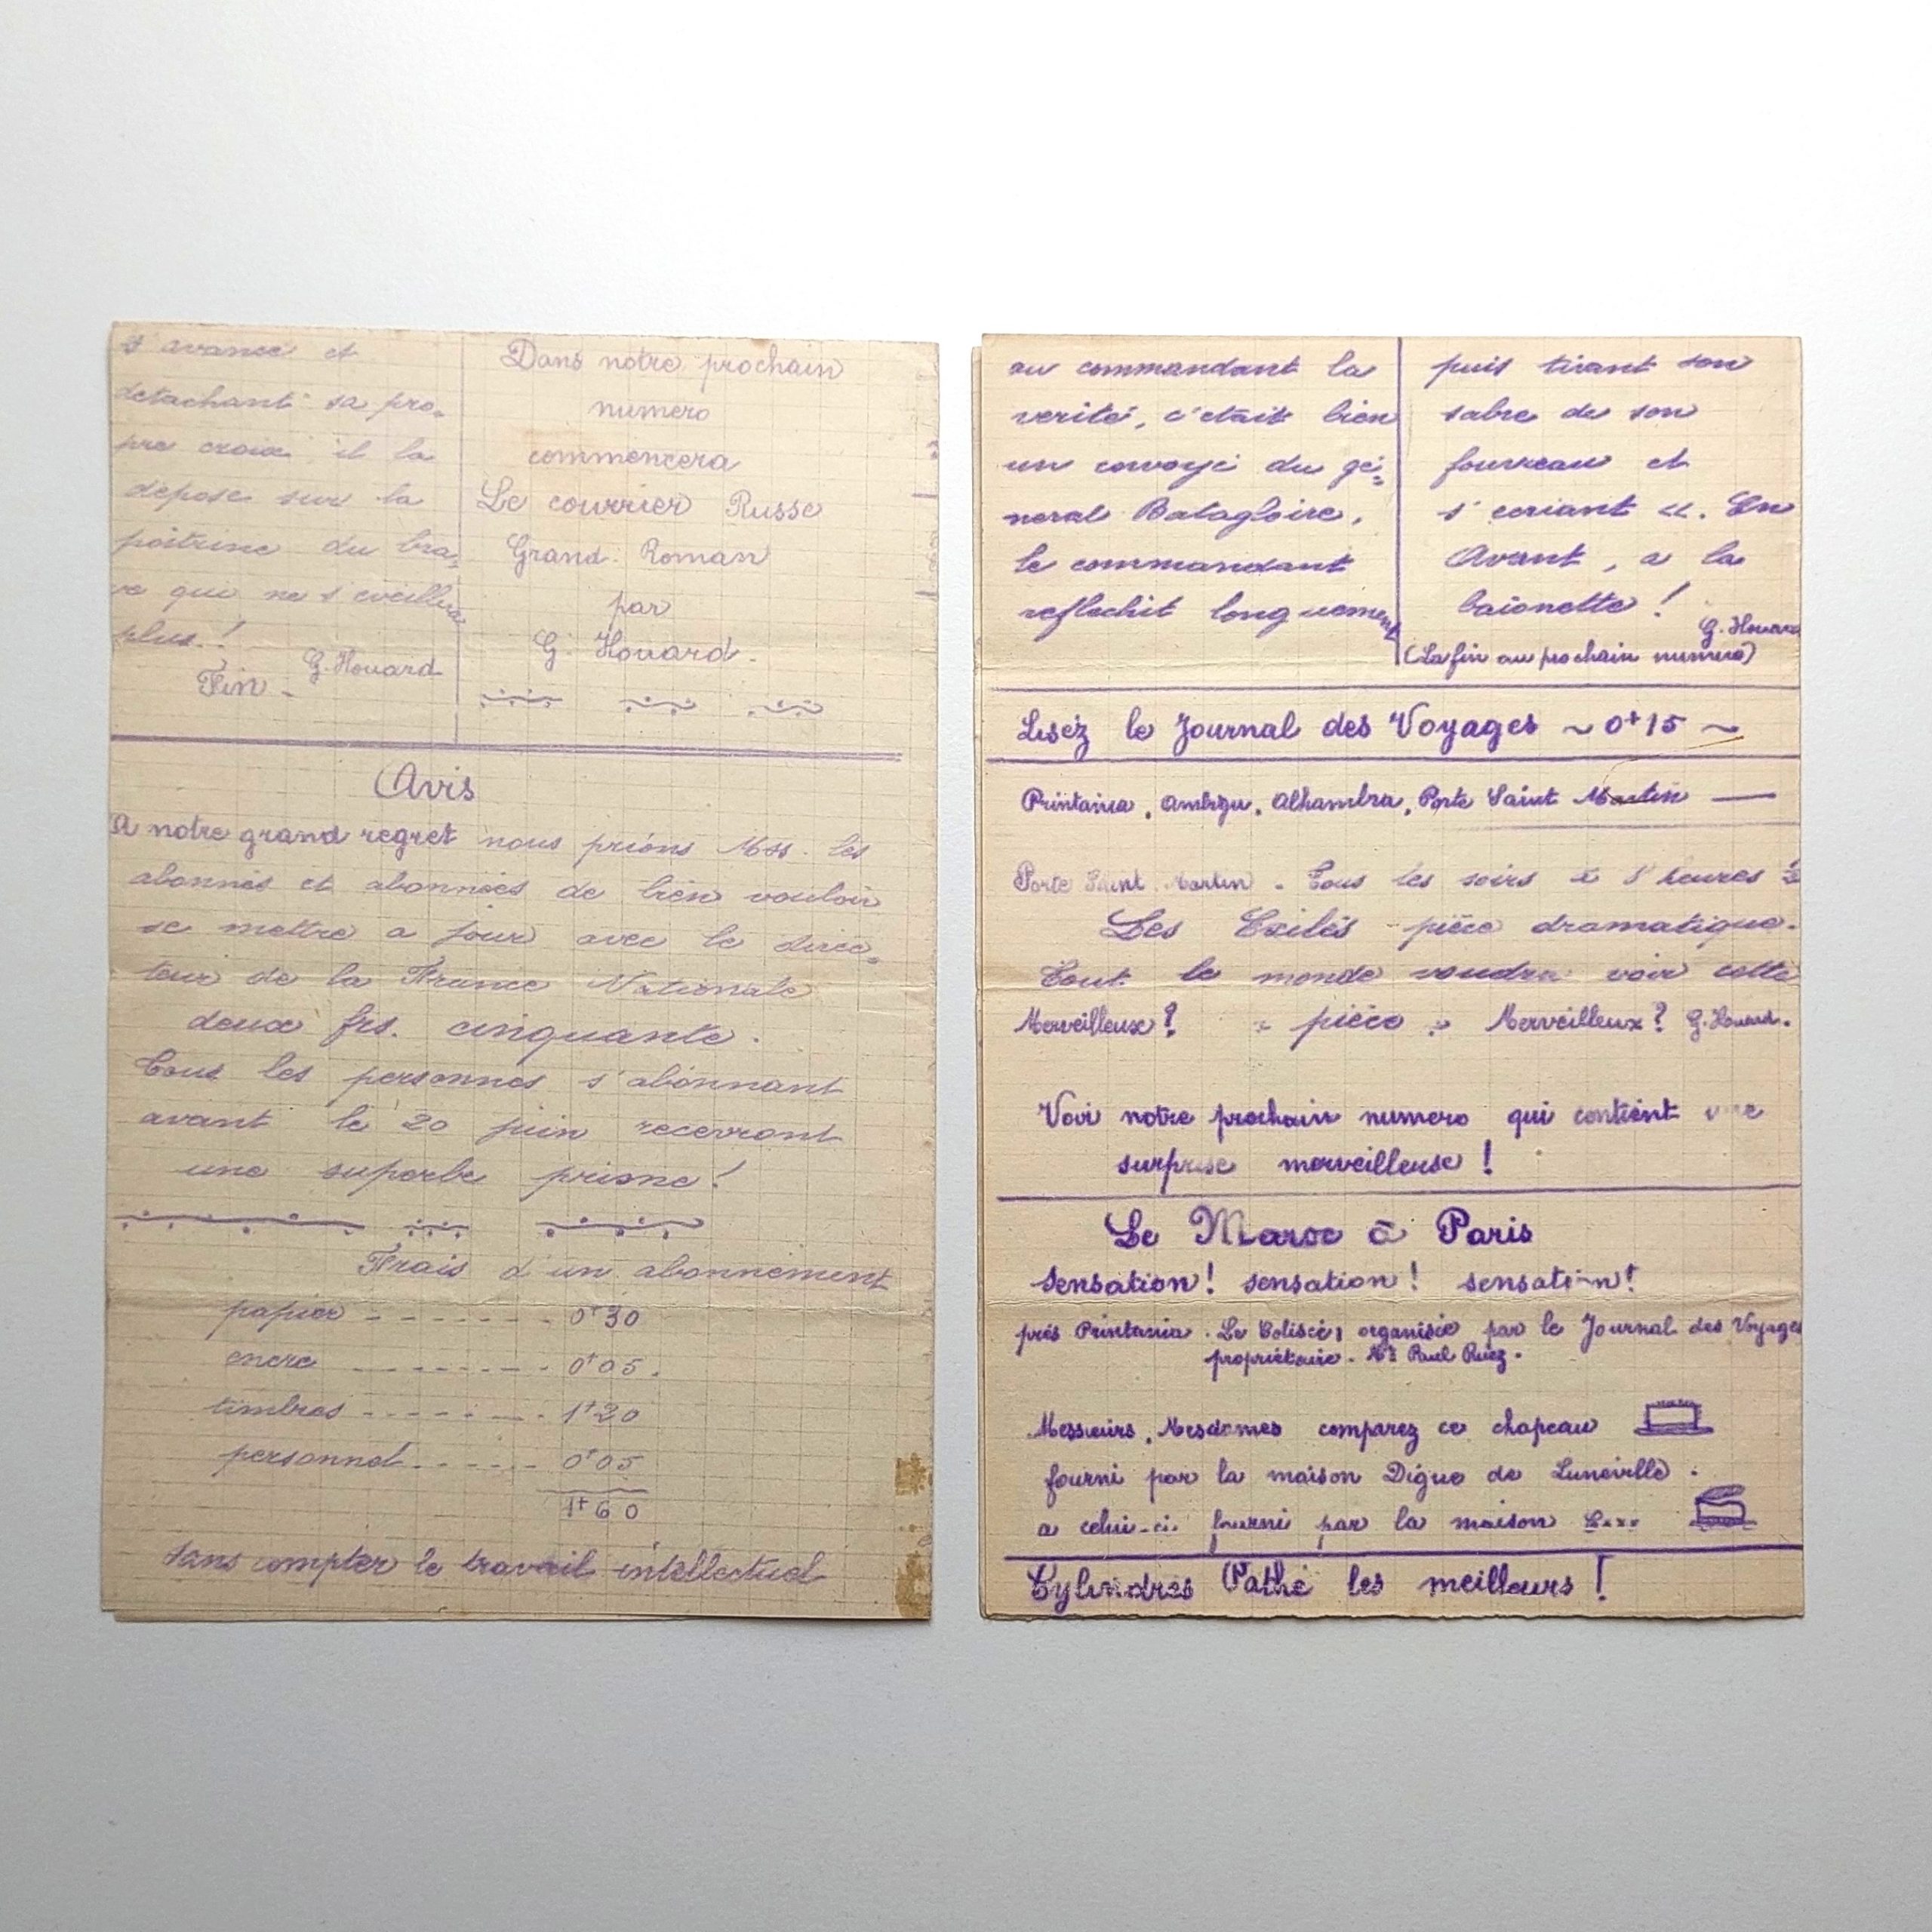 s'avance et
detachant sa pro=
pre croix il la
depose sur la
poitrine du bra=
ve qui ne s'eveillera
plus.!
G. Houard
Fin -
Dans notre prochain
numero
commencera
Le courrier Russe
Grand Roman
par
G. Houard.
Avis
A notre grand regret nous prions Mss. les
abonnés et abonnées de bien vouloir
se mettre a jour avec le direc=
teur de la France Nationale
deux frs. cinquante.
Tous les personnes s'abonnant
avant le 20 juin recevront
une superbe prisme!
Frais d'un abonnement
papier - - - - - - 0f30
encre - - - - - - - 0f05.
timbres - - - - - - - 1f20
personnel - - - - - 0f05
1f60
sans compter le travail intellectuel
au commandant la
verité, c'était bien
un convoyé du gé=
neral Batagloire,
le commandant
reflechit longuement
puis tirant son
sabre de son
fourreau et
s'ecriant «. En
Avant, a la
baionette!
G. Houard
(La fin au prochain numero)
Lisez le Journal des Voyages ~ 0f15 ~
Printania, Ambigu, Alhambra, Porte Saint Martin —
Porte Saint Martin. Tous les soirs à 8 heures ½
Les Exilés pièce dramatique.
Tout le monde voudra voir cette
Merveilleuse? pièce Merveilleux? G. Houard.
Voir notre prochain numero qui contient une
surprise merveilleuse!
Le Maroc à Paris
Sensation! sensation! sensation!
près Printania. Le Colisée, organisée par le Journal des Voyages
propriétaire. Mr Paul Ruez.
Messieurs, Mesdames comparez ce chapeau
fourni par la maison Digue de Luneville.
a celui-ci fourni par la maison xxx
Cylindres Pathé les meilleurs!